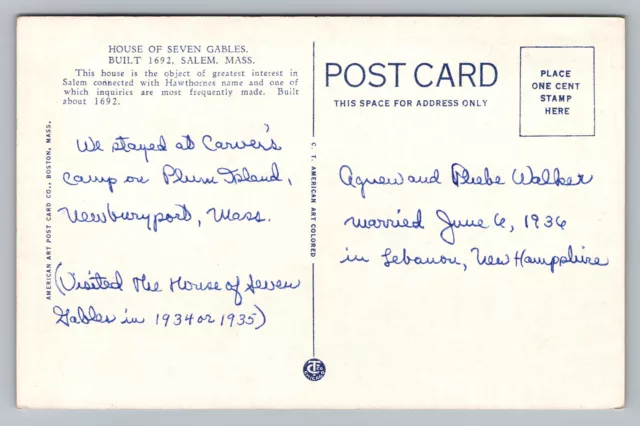 HOUSE OF SEVEN GABLES.
BUILT 1692, SALEM, MASS.
This house is the object of greatest interest in
Salem connected with Hawthornes name and one of
which inquiries are most frequently made. Built
about 1692.
We stayed at Carver's
camp on Plum Island,
Newburyport, Mass.
(Visited the House of Seven
Gables in 1934 or 1935)
AMERICAN ART POST CARD CO., BOSTON, MASS.
C. T. AMERICAN ART COLORED
POST CARD
THIS SPACE FOR ADDRESS ONLY
PLACE
ONE CENT
STAMP
HERE
Agnew and Phebe Walker
married June 6, 1936
in Lebanon, New Hampshire